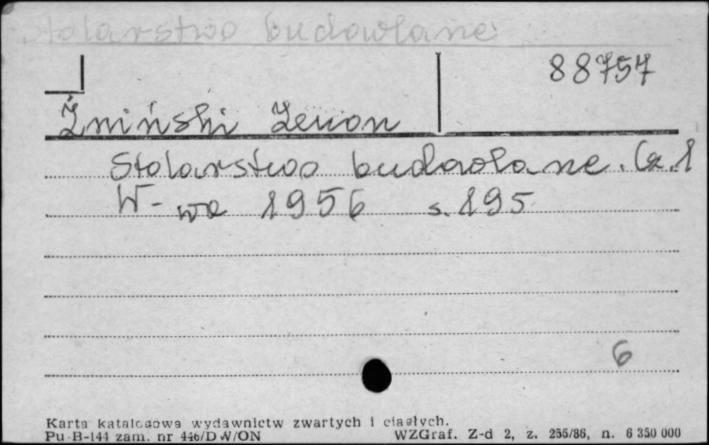 Stolarstwo budowlane
88757
Żmiński Zenon
Stolarstwo budowlane. Cz. 1
W-wa 1956 s. 195
6
Karta katalogowa wydawnictw zwartych i ciągłych.
Pu-B-144 zam. nr 446/DW/ON WZGraf. Z-d 2, z. 255/86, n. 6 350 000